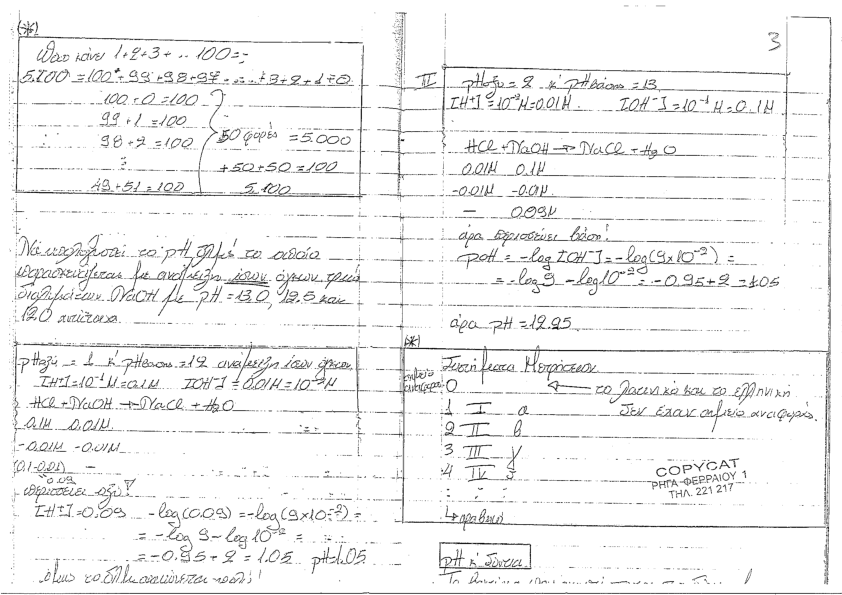 (*)
Πόσο κάνει 1+2+3+... 100=;
5.100 = 100+99+98+97+.....+3+2+1+0
100+0=100
99+1=100
98+2=100
50 φορές = 5.000
+50+50=100
49+51=100
5.100
Να υπολογιστεί το pH, δ/μέ το οποίο
παρασκευάζεται με ανάμειξη ίσων όγκων τριών
διαλυμάτων NaOH με pH = 13.0, 12.5 και
12.0 αντίστοιχα.
pHοξύ = 1 κ' pHβάσης = 12 ανάμειξη ίσων όγκων
[H+]=10⁻¹M=0.1M [OH⁻]=0.01M=10⁻²M
HCl + NaOH → NaCl + H₂O
0.1M 0.01M
-0.01M -0.01M
(0.1-0.01) –
0.09
περισσεύει οξύ!
[H+]=0.09 -log(0.09) = -log(9x10⁻²) =
= -log9 - log10⁻² =
= -0.95+2 = 1.05 pH=1.05
3
II pHοξυ = 2 κ' pHβάσης = 13
[H+]=10⁻²M=0.01M [OH⁻]=10⁻¹M=0.1M
HCl + NaOH → NaCl + H₂O
0.01M 0.1M
-0.01M -0.01M
– 0.09M
άρα περισσεύει βάση!
pOH = -log[OH⁻] = -log(9x10⁻²) =
= -log9 - log10⁻² = -0.95+2 = 1.05
άρα pH = 12.95
(*)
Συστήματα Μετρήσεων
σημείο αναφοράς 0 ← το λατινικό και το ελληνικό
δεν είχαν σημείο αναφοράς.
1 I α
2 II β
3 III γ
4 IV δ
: : :
↳ αραβική
COPYCAT
ΡΗΓΑ ΦΕΡΡΑΙΟΥ 1
ΤΗΛ. 221 217
pH κ'